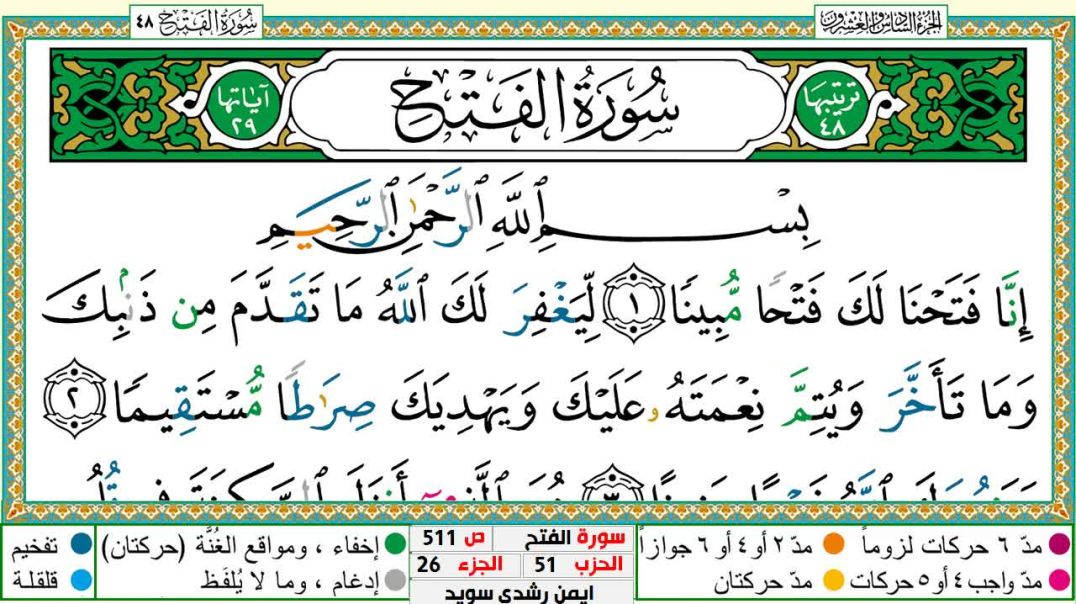 الجزء السادس والعشرون
سُورَةُ الفَتْحِ ٤٨
ترتيبها ٤٨
سُورَةُ الفَتْحِ
آياتها ٢٩
بِسْمِ ٱللَّهِ ٱلرَّحْمَٰنِ ٱلرَّحِيمِ
إِنَّا فَتَحْنَا لَكَ فَتْحًا مُّبِينًا ١ لِّيَغْفِرَ لَكَ ٱللَّهُ مَا تَقَدَّمَ مِن ذَنۢبِكَ
وَمَا تَأَخَّرَ وَيُتِمَّ نِعْمَتَهُۥ عَلَيْكَ وَيَهْدِيَكَ صِرَٰطًا مُّسْتَقِيمًا ٢
مدّ ٦ حركات لزوماً
مدّ ٢ أو ٤ أو ٦ جوازاً
مدّ واجب ٤ أو ٥ حركات
مدّ حركتان
سورة الفتح
ص 511
الحزب 51
الجزء 26
ايمن رشدي سويد
إخفاء ، ومواقع الغُنَّة (حركتان)
تفخيم
إدغام ، وما لا يُلفَظ
قلقلة